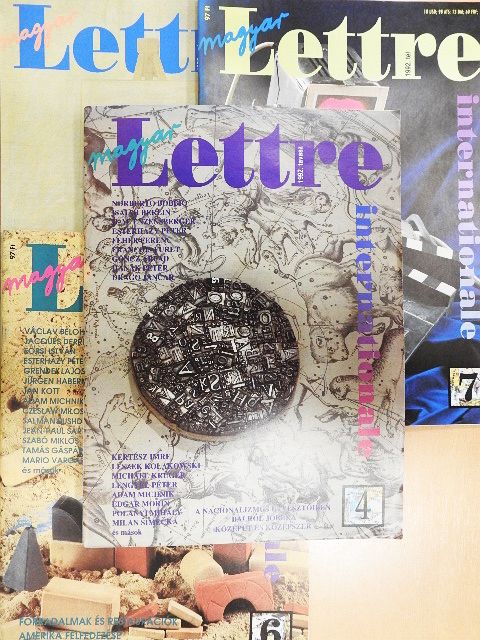 magyar
Lettre
97 Ft
magyar
Lettre
1992. tél
internationale
7
magyar
Lettre
1992. tavasz
internationale
NORBERTO BOBBIO
ISAIAH BERLIN
H. M. ENZENSBERGER
ESTERHÁZY PÉTER
FEHÉR FERENC
FRANÇOIS FURET
GÖNCZ ÁRPÁD
HANÁK PÉTER
DRAGO JANČAR
KERTÉSZ IMRE
LESZEK KOLAKOWSKI
MICHAEL KRÜGER
LENGYEL PÉTER
ADAM MICHNIK
EDGAR MORIN
POLÁNYI MIHÁLY
MILAN SIMECKA
és mások
A NACIONALIZMUS
KÖZÉPÚT ÉS KÖZÉPSZER
4
97 Ft
magyar
L
VÁCLAV BĚLOH
JACQUES DERR
EÖRSI ISTVÁN
ESTERHÁZY PÉTE
GRENDEL LAJOS
JÜRGEN HABERM
JAN KOTT
ADAM MICHNIK
CZESLAW MILOS
SALMAN RUSHD
JEAN-PAUL SAR
SZABÓ MIKLÓS
TAMÁS GÁSPÁR
MARIO VARGAS
és mások
FORRADALMAK ÉS RESTAURÁCIÓK
AMERIKA FELFEDEZÉSE
6